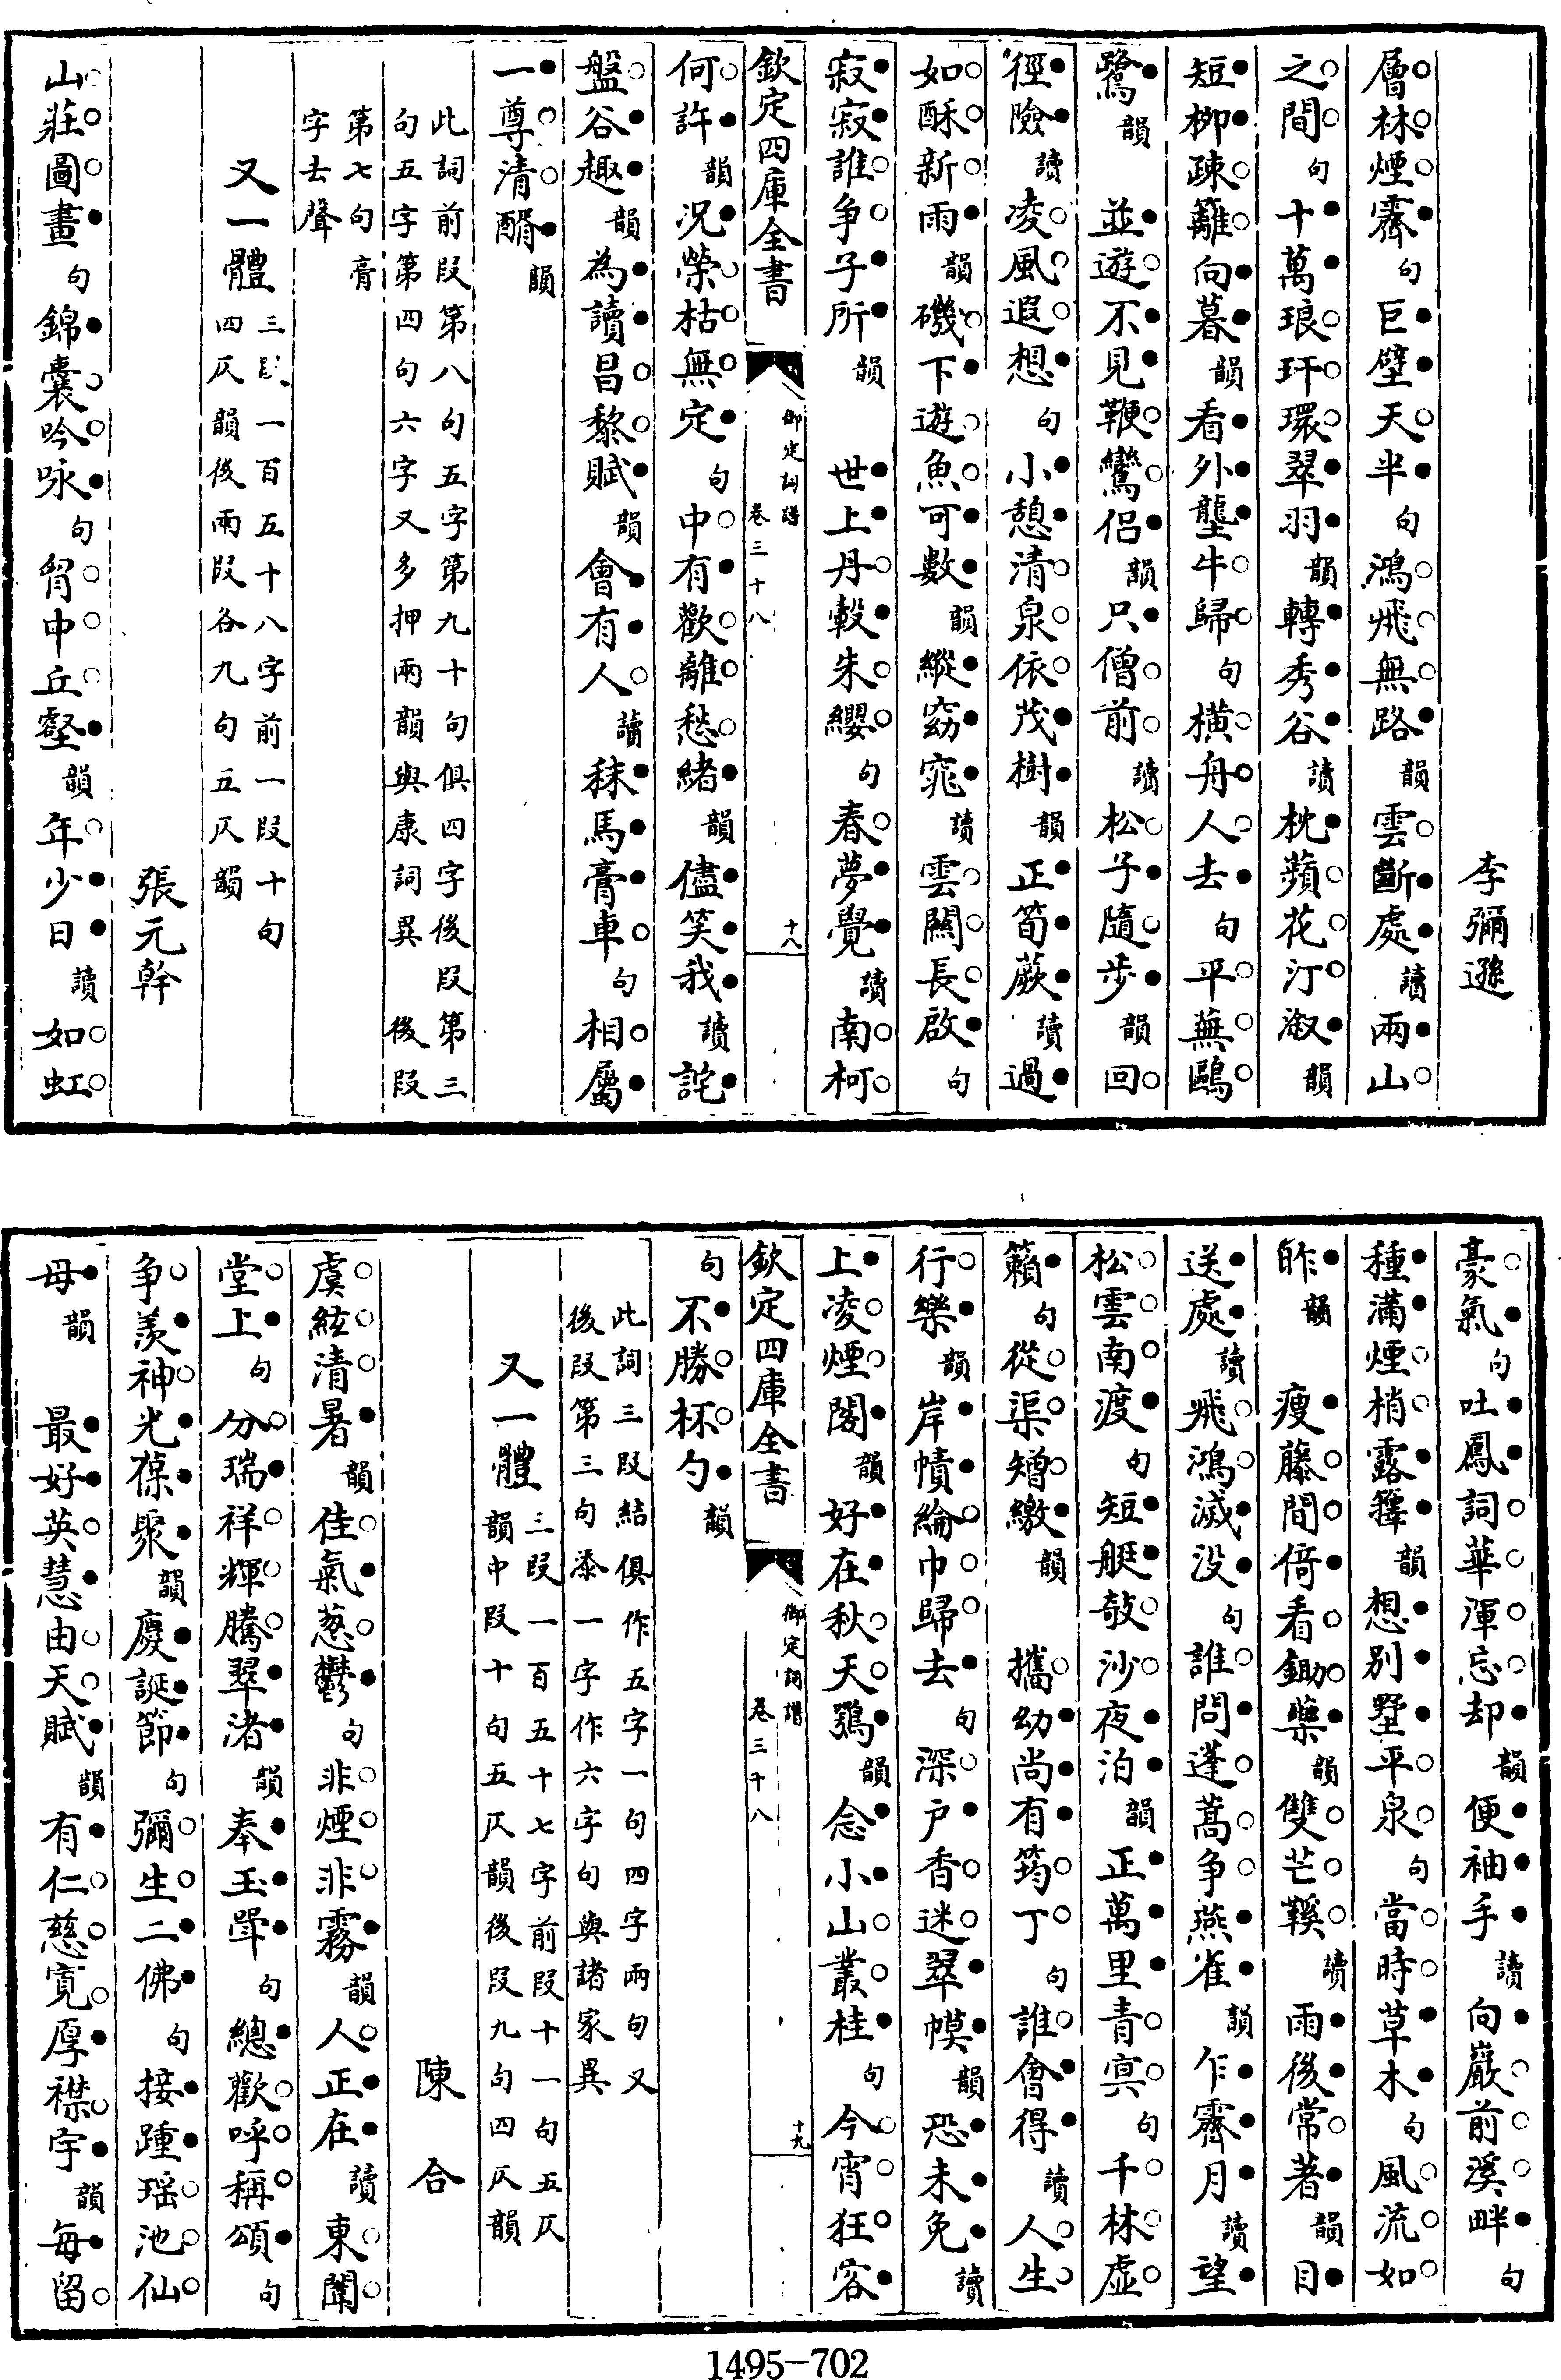 李彌遜
層林煙霽句巨壁天半句鴻飛無路韻雲斷處讀兩山
之間句十萬琅玕環翠羽韻轉秀谷讀枕蘋花汀溆韻
短栁疎籬向暮韻看外壟牛歸句橫舟人去句平蕪鷗
鷺韻 並遊不見鞭鸞侣韻只僧前讀松子隨步韻回
徑險讀凌風遐想句小憩清泉依茂樹韻正筍蕨讀過
如酥新雨韻磯下遊魚可數韻縱窈窕讀雲關長啟句
寂寂誰爭子所韻 世上丹轂朱纓句春夢覺讀南柯
欽定四庫全書 御定詞譜 卷三十八 十八
何許韻況榮枯無定句中有歡離愁緒韻儘笑我讀詫
盤谷趣韻為讀昌黎賦韻會有人讀秣馬膏車句相屬
一尊清醑韻
此詞前段第八句五字第九十句俱四字後段第三
句五字第四句六字又多押兩韻與康詞異 後段
第七句膏
字去聲
又一體三段一百五十八字前一段十句
四仄韻後兩段各九句五仄韻
張元幹
山莊圖畫句錦囊吟咏句胷中丘壑韻年少日讀如虹
豪氣句吐鳳詞華渾忘却韻便袖手讀向巖前溪畔句
種滿煙梢露籜韻想别墅平泉句當時草木句風流如
昨韻 瘦藤閒倚看鋤藥韻雙芒鞵讀雨後常著韻目
送處讀飛鴻滅没句誰問蓬蒿爭燕雀韻乍霽月讀望
松雲南渡句短艇敧沙夜泊韻正萬里青㝠句千林虚
籟句從渠矰繳韻 攜幼尚有筠丁句誰會得讀人生
行樂韻岸幘綸巾歸去句深户香迷翠幙韻恐未免讀
上凌煙閣韻好在秋天鶚韻念小山叢桂句今宵狂客
欽定四庫全書 御定詞譜 卷三十八 十九
句不勝杯勺韻
此詞三段結俱作五字一句四字兩句又
後段第三句添一字作六字句與諸家異
又一體三段一百五十七字前段十一句五仄
韻中段十句五仄韻後段九句四仄韻
陳合
虞絃清暑韻佳氣葱鬱句非煙非霧韻人正在讀東闈
堂上句分瑞祥輝騰翠渚韻奉玉斝句總歡呼稱頌句
爭羨神光葆聚韻慶誕節句彌生二佛句接踵瑶池仙
母韻 最好英慧由天賦韻有仁慈寛厚襟宇韻每留
1495-702